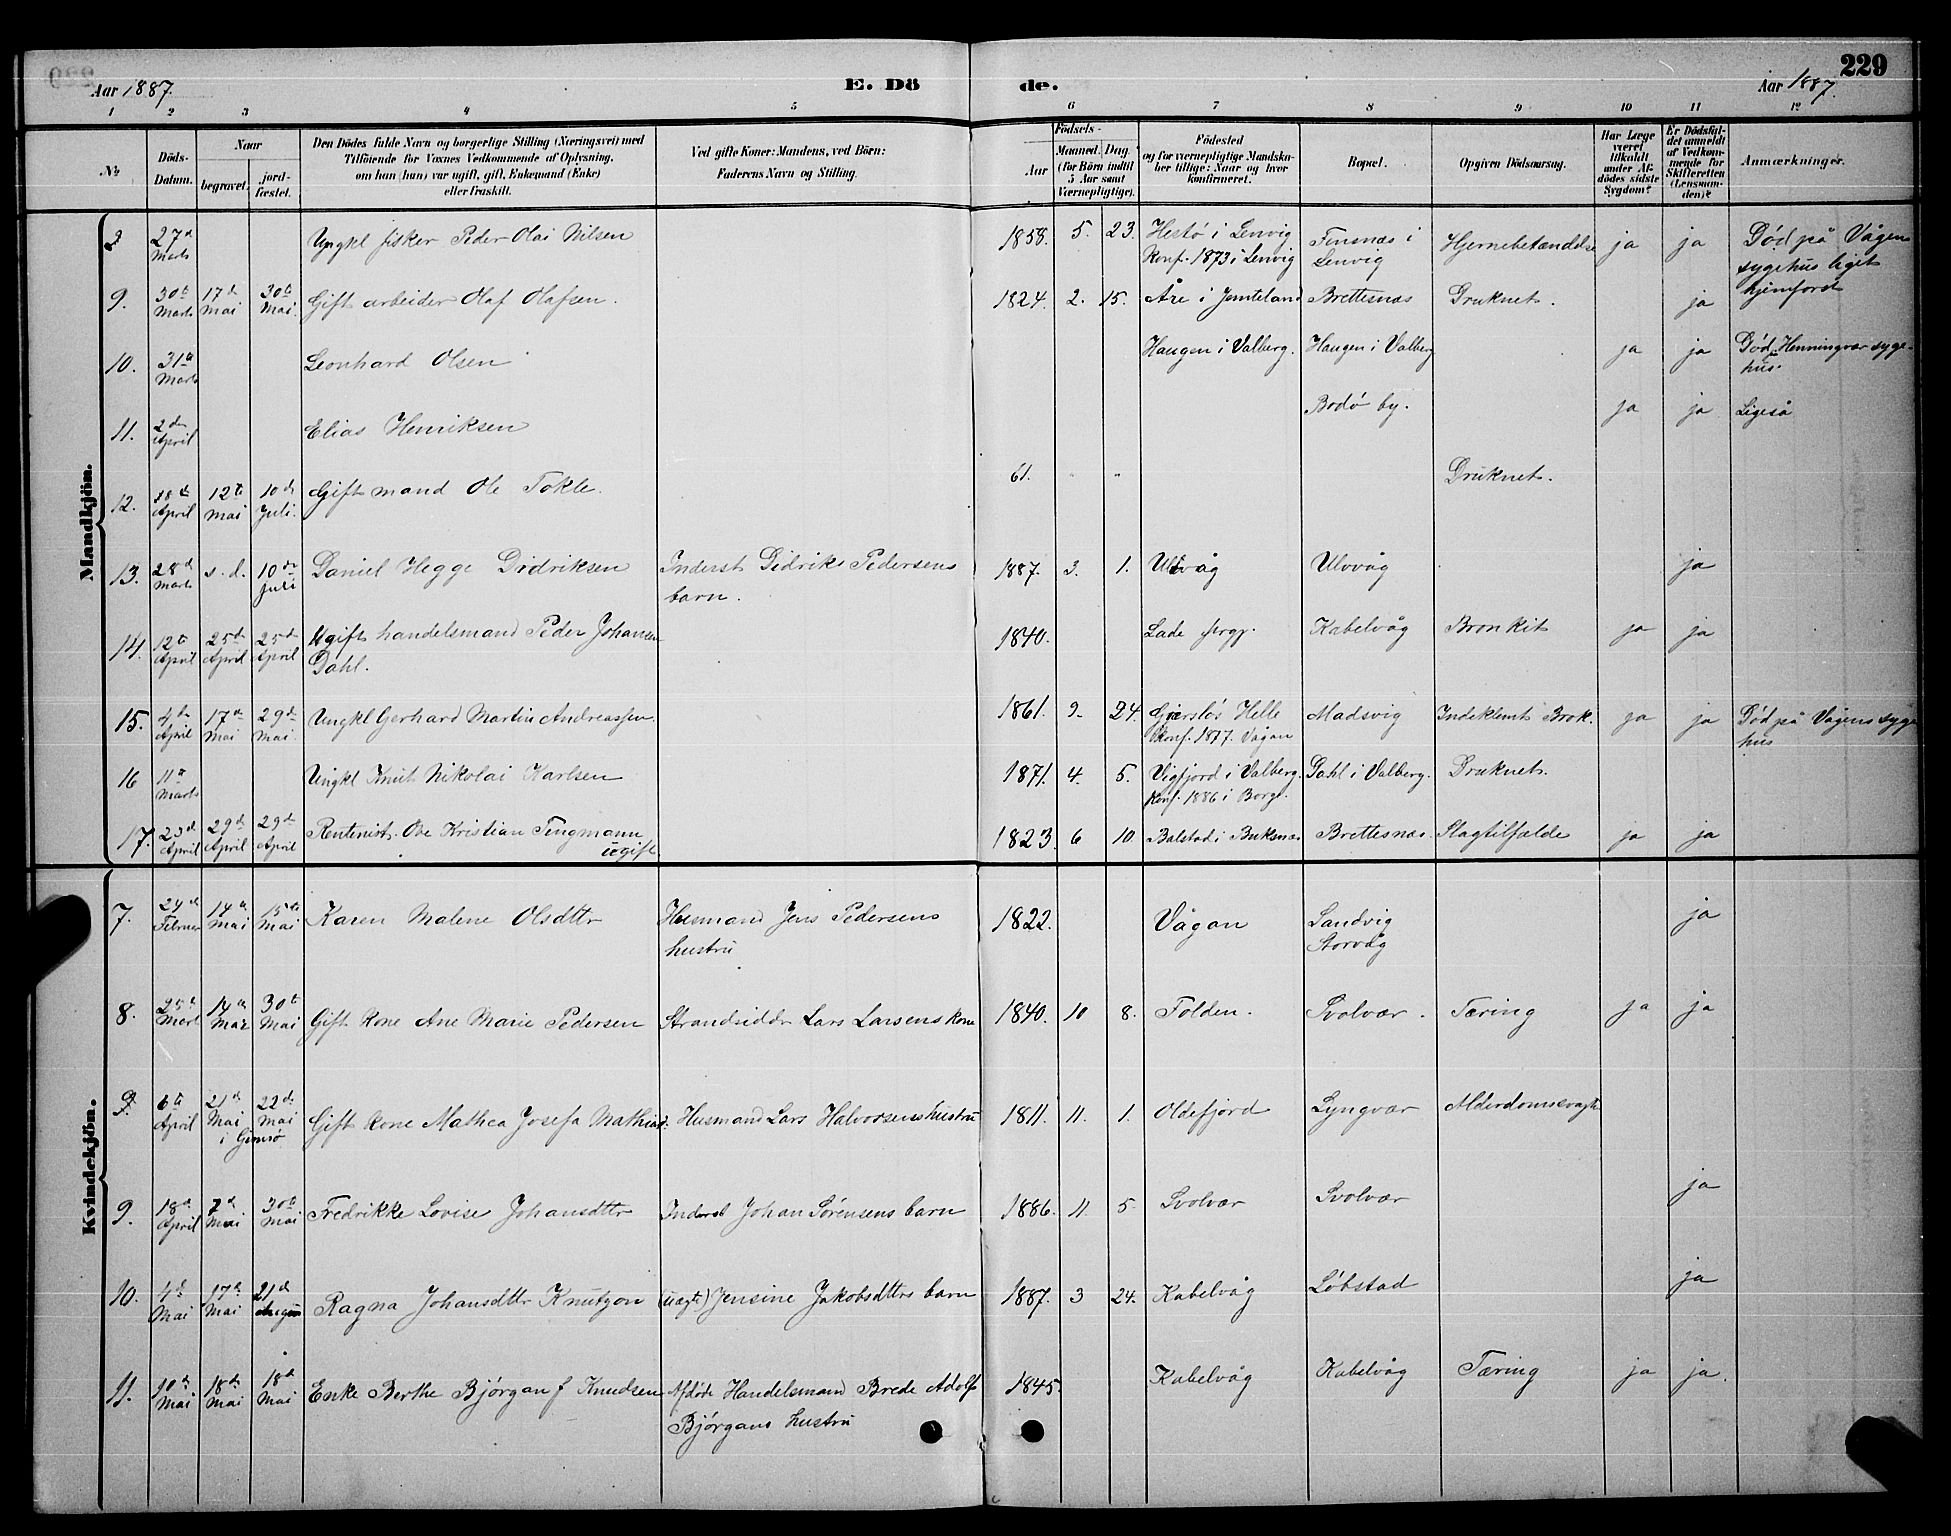 229
Aar 1887.
E. Dö
de.
Aar 1887.
1 2 3 4 5 6 7 8 9 10 11 12
No.
Döds-
Datum.
Naar
begravet.
jord-
fæstet.
Den Dödes fulde Navn og borgerlige Stilling (Næringsvei) med
Tilföiende for Voxnes Vedkommende af Oplysning,
om han (hun) var ugift, gift, Enkemand (Enke)
eller fraskilt.
Ved gifte Koner: Mandens, ved Börn:
Faderens Navn og Stilling.
Födsels-
Aar
Maaned. Dag.
(for Börn indtil
5 Aar samt
Værnepligtige).
Födested
og for værnepligtige Mandska-
ber tillige: Naar og hvor
konfirmeret.
Bopæl.
Opgiven Dödsaarsag.
Har Læge
været
tilkaldt
under Af-
dödes sidste
Sygdom?
Er Dödsfal-
det anmeldt
af Vedkom-
mende for
Skifteretten
(Lensman-
den)?
Anmærkninger.
Mandkjön.
27de Marts Ungkl fisker Peder Olai Nilsen 1858. 5. 23. Hestø i Lenvig Konf. 1873 i Lenvig Finsnæs i Lenvig Hjernebetændelse ja ja Død på Vågens sygehus liget hjemført
9. 30te Marts 17de Mai 30te Mai. Gift arbeider Olaf Olafsen. 1824. 2. 15. Åre i Jemteland Brettesnæs Druknet. ja
10. 31te Marts Leonhard Olsen Haugen i Valberg. Haugen i Valberg ja ja Død på Henningvær sygehus.
11. 2den April Elias Henriksen Bodø by. ja ja Ligeså
12. 18de April 12te Mai 10de Juli. Gift mand Ole Tokle. 61. " " Druknet.
13. 28de Marts s. d. 10de Juli Daniel Hegge Didriksen Inderst Didriks Pedersens barn. 1887. 3. 1. Ulvåg Ulvvåg ja
14. 12te April 25de April 25de April Ugift handelsmand Peder Johansen Dahl. 1840. Lade prgj. Kabelvåg Bronkit ja ja
15. 4de April 17de Mai 29de Mai. Ungkl Gerhard Martin Andreassen. 1861. 9. 24. Gjersløs Helle Konf. 1877. Vågan Madsvig Indeklemt Brok. ja ja Død på Vågens sygehus
16 11te Marts Ungkl Knut Nikolai Karlsen 1871. 4. 5. Vigfjord i Valberg. Konf. 1886 i Borge. Dahl i Valberg. Druknet.
17. 23de April 29de April 29de April Rentenist. Ove Kristian Tingmann ugift 1823. 6 10. Balstad i Buksnæs Brettesnæs. Slagtilfælde ja ja
Kvindekjön.
7. 24de Februar 14de Mai 15de Mai Karen Malene Olsdttr Husmand Jens Pedersens hustru 1822. Vågan Sandvig Storvåg ja
8. 25de Marts 14de Mai 30te Mai Gift kone Ane Marie Pedersen Strandsidder Lars Larsens kone 1840. 10 8. Folden. Svolvær. Tæring ja ja
6te April 21de Mai i Gimsø 22de Mai Gift kone Mathea Josefa Mathiasd. Husmand Lars Halvorsens hustru 1811. 11. 1. Oldefjord Lyngvær Alderdomssvagh.
9. 18de April 7de Mai 30te Mai Fredrikke Lovise Johansdttr Inderst Johan Sørensens barn 1886. 11. 5. Svolvær Svolvær ja
10. 4de Mai 17de Mai 21de August Ragna Johansdttr Knutzon (uægte) Jensine Jakobsdttrs barn 1887. 3 24. Kabelvåg Løbstad ja
11. 10de Mai 18de Mai 18de Mai Enke Berthe Bjørgan f Knudsen Afdøde Handelsmand Brede Adolf Bjørgans hustru 1845. Kabelvåg Kabelvåg Tæring ja ja.